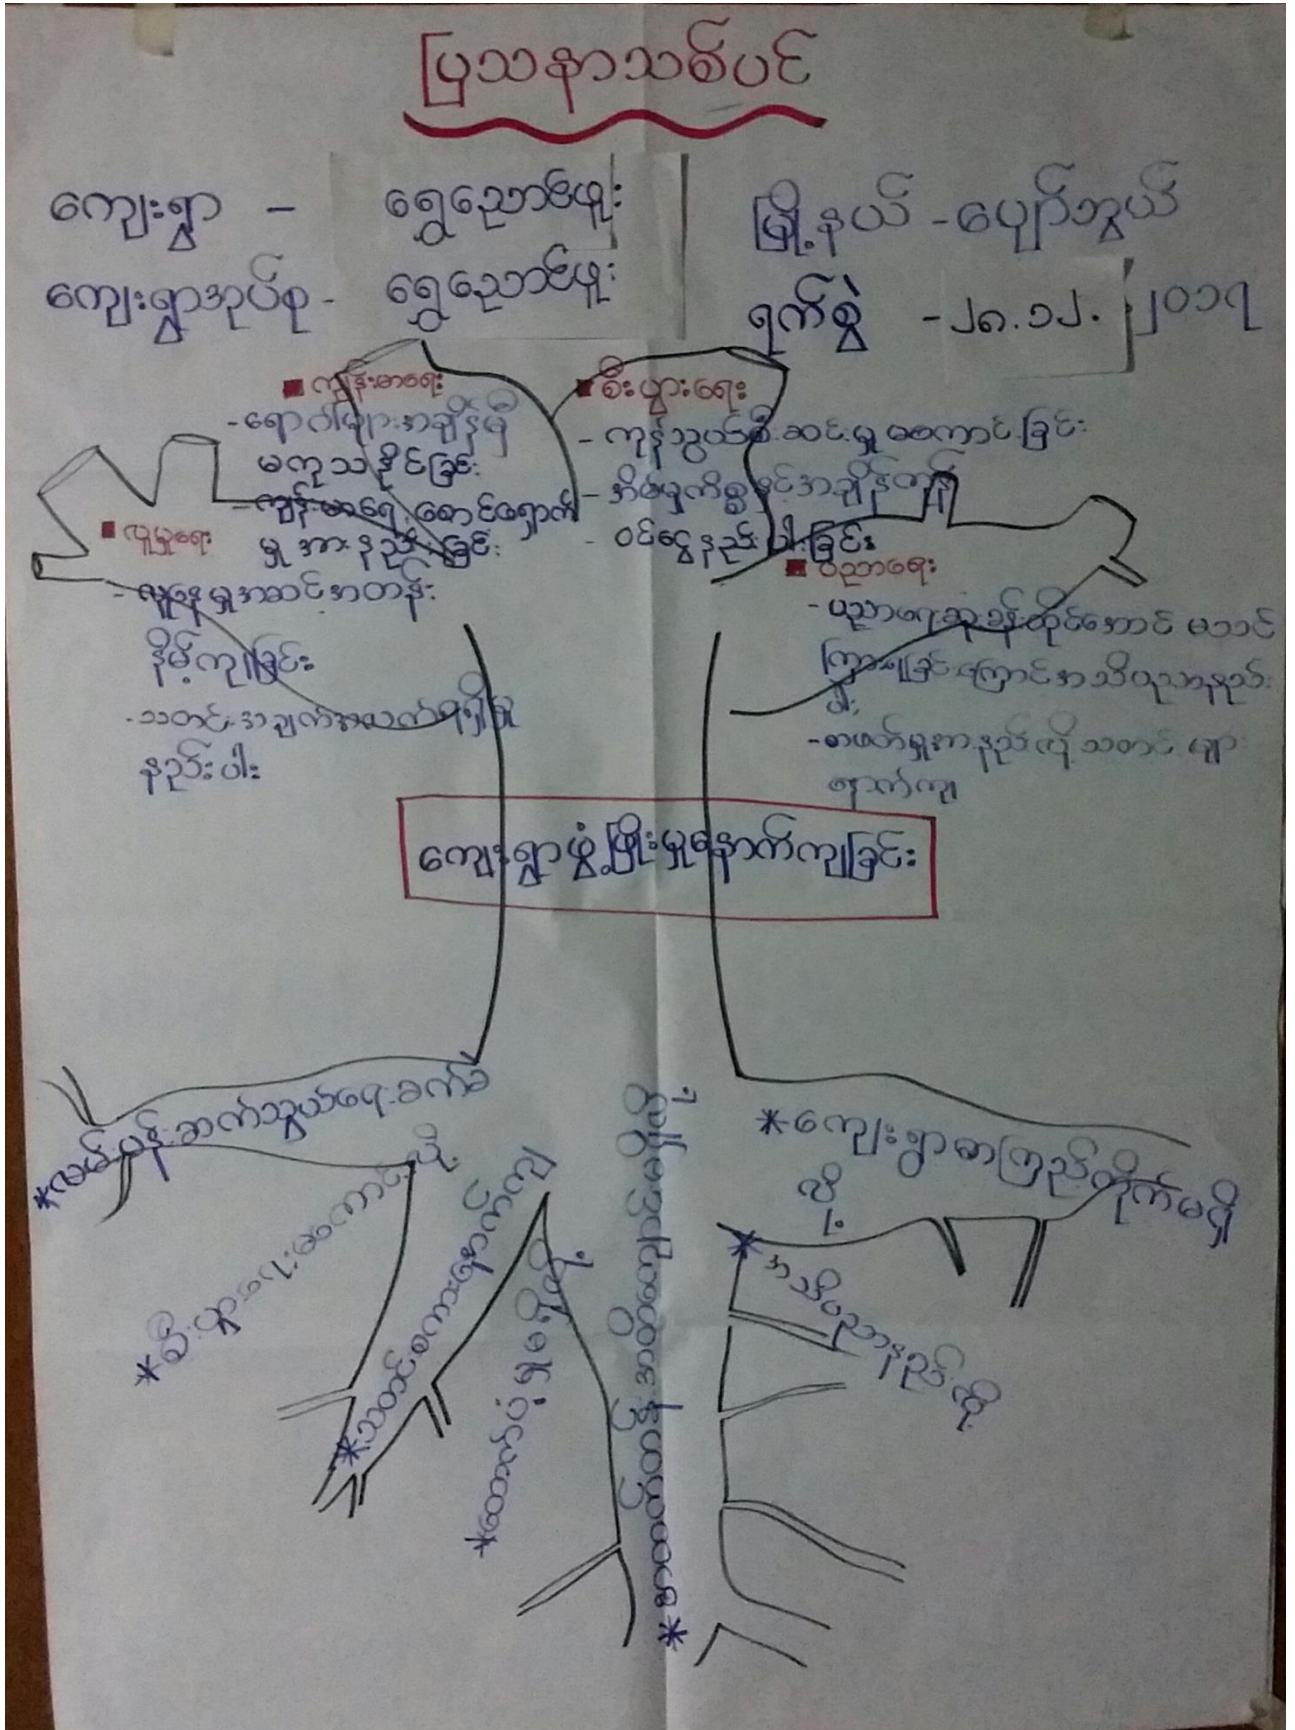 ပြသနာသစ်ပင်
ကျေးရွာ - ရွှေညောင်ဖူး
မြို့နယ် - ပျော်ဘွယ်
ကျေးရွာအုပ်စု - ရွှေညောင်ဖူး
ရက်စွဲ - ၂၈.၁၂. ၂၀၁၇
■ ကျန်းမာရေး
- ရောဂါများအချိန်မှီ
မကုသနိုင်ခြင်း
- ကျန်းမာရေးစောင့်ရှောက်
မှုအားနည်းခြင်း
■ စီးပွားရေး
- ကုန်သွယ်စီးဆင်းမှုမကောင်းခြင်း
- အိမ်မှုကိစ္စနှင့်အချိန်ကုန်
- ဝင်ငွေနည်းပါးခြင်း
■ လူမှုရေး
- လူနေမှုအဆင့်အတန်း
နိမ့်ကျခြင်း
- သတင်းအချက်အလက်ရရှိမှု
နည်းပါး
■ ပညာရေး
- ပညာရေးဆုံးခန်းတိုင်အောင် မသင်
ကြားရခြင်းကြောင့်အသိပညာနည်း
ပါး
- စာဖတ်မှုအားနည်းလို့ သတင်းများ
နောက်ကျ
ကျေးရွာဖွံ့ဖြိုးမှုနောက်ကျခြင်း
*လမ်းပန်းဆက်သွယ်ရေးခက်ခဲ
*စီးပွားရေးမကောင်းလို့
*သတင်းစကားနောက်ကျ
*ထောက်ပံ့မှုမရှိလို့
*စေတတ်ထက်မြက်
*ကျေးရွာစာကြည့်တိုက်မရှိ
လို့
*အသိပညာနည်းလို့